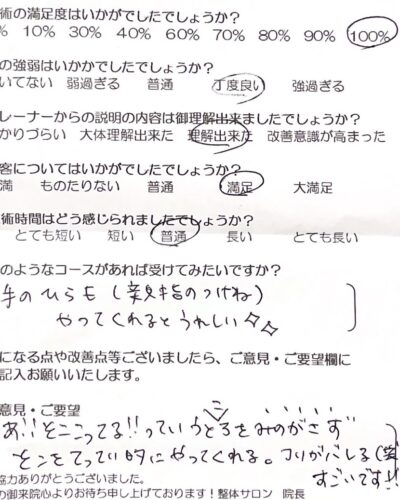 術の満足度はいかがでしたでしょうか?
% 10% 30% 40% 60% 70% 80% 90% 100%
の強弱はいかかでしたでしょうか?
いてない 弱過ぎる 普通 丁度良い 強過ぎる
レーナーからの説明の内容は御理解出来ましたでしょうか?
かりづらい 大体理解出来た 理解出来た 改善意識が高まった
客についてはいかがでしたでしょうか?
満 ものたりない 普通 満足 大満足
術時間はどう感じられましたでしょうか?
とても短い 短い 普通 長い とても長い
のようなコースがあれば受けてみたいですか?
手のひらも(親指のつけね)
やってくれるとうれしい
になる点や改善点等ございましたら、ご意見・ご要望欄に
記入お願いいたします。
意見・ご要望
あ!!そここってる!!っていうところをみのがさず
そこをてってい的にやってくれる。コリがバレる(笑
すごいです!!
協力ありがとうございました。
の御来院心よりお待ち申し上げております!整体サロン 院長